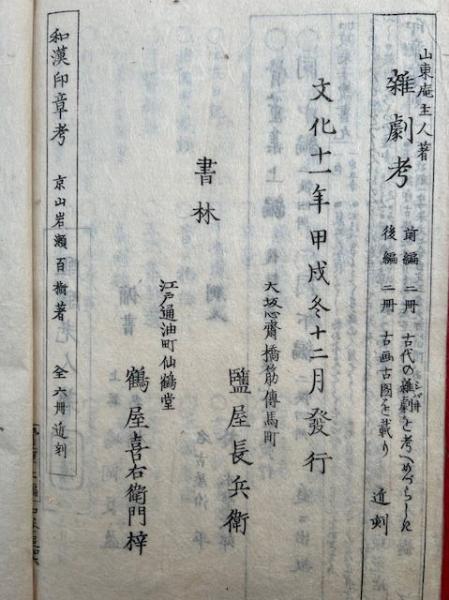 山東庵主人著
雜劇考
前編 二冊 古代の雜劇を考へめづらしき
後編 二冊 古画古図を載り 近刻
文化十一年甲戌冬十二月發行
大坂心齋橋筋傳馬町
鹽屋長兵衛
書林
江戸通油町仙鶴堂
鶴屋喜右衛門梓
和漢印章考 京山岩瀬百樹著 全六冊近刻